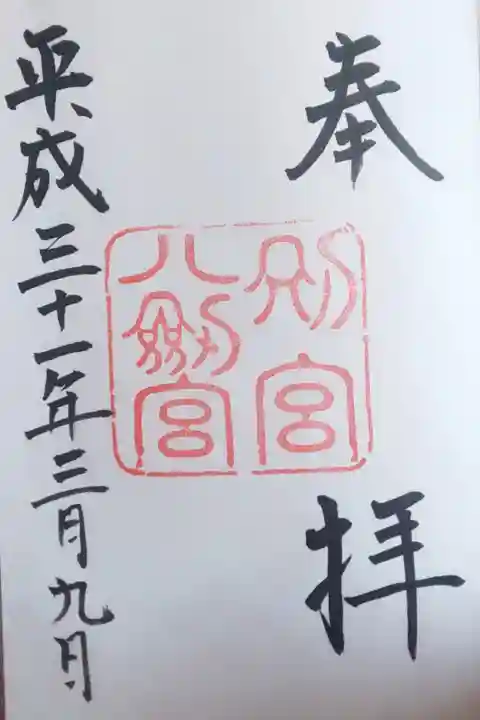 奉拝
別宮
八剱宮
平成三十一年三月九日